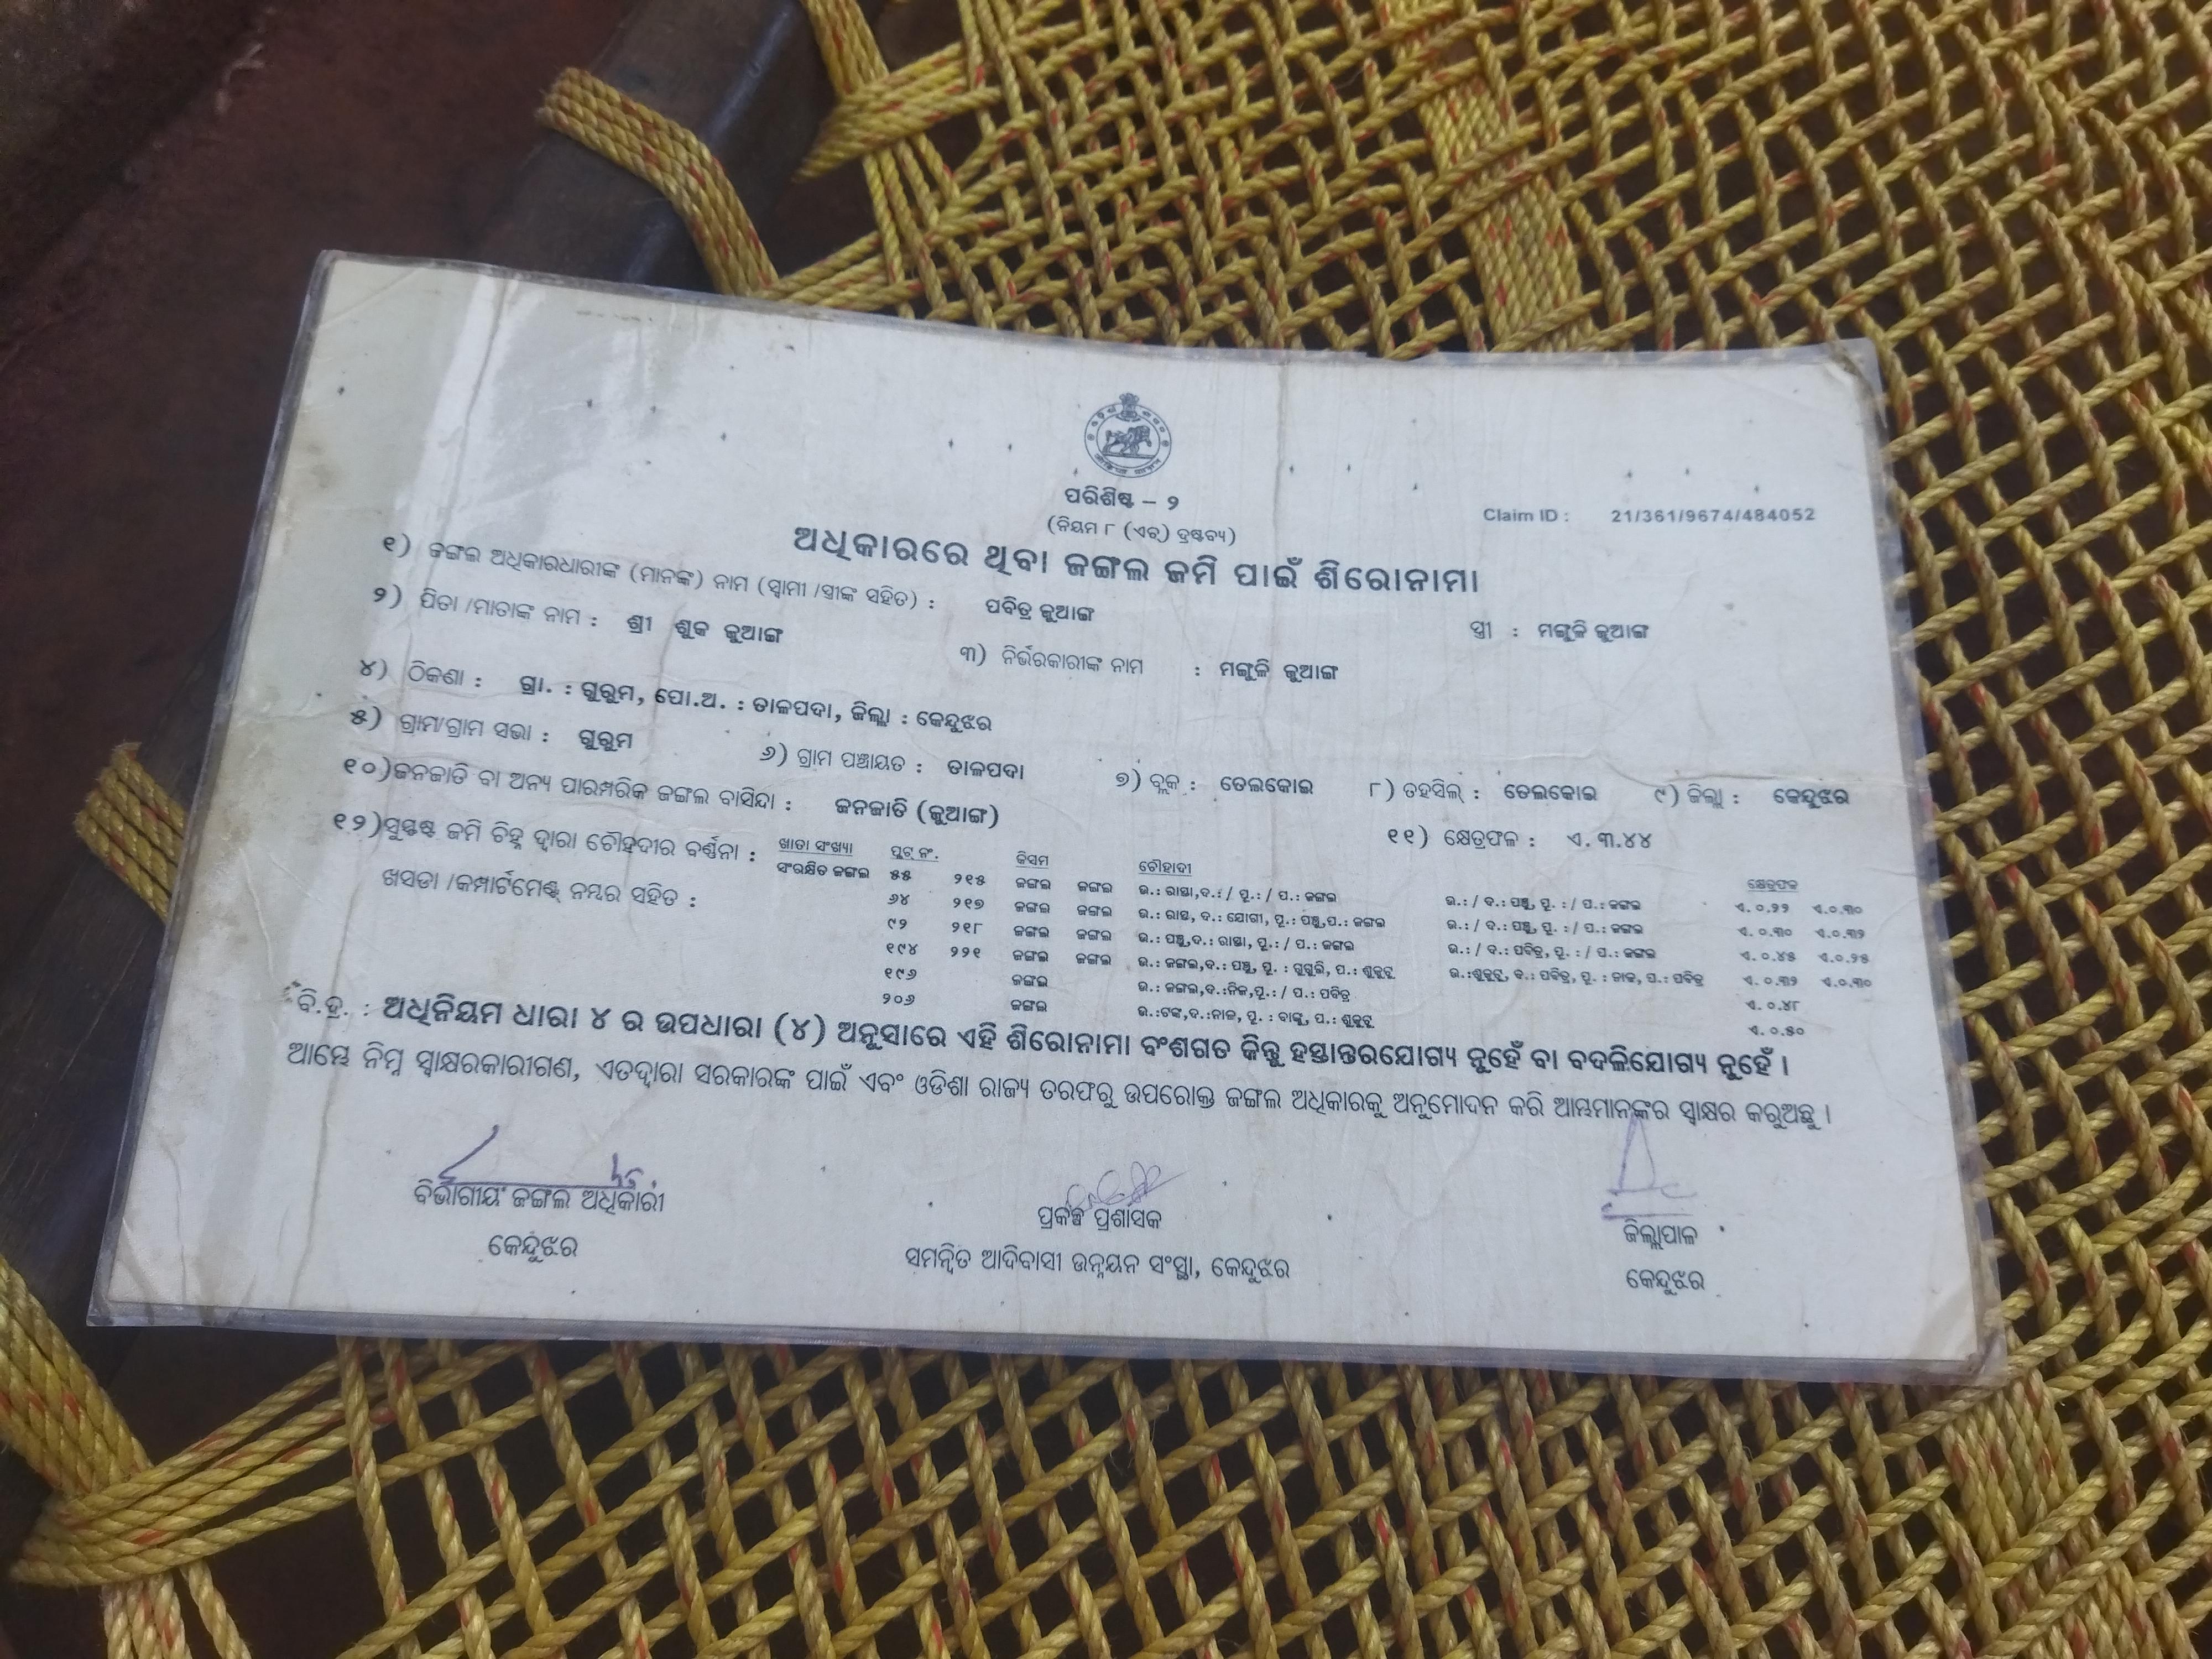 ପରିଶିଷ୍ଟ – ୨
(ନିୟମ ୮ (ଏଚ୍) ଦ୍ରଷ୍ଟବ୍ୟ)
Claim ID : 21/361/9674/484052
ଅଧିକାରରେ ଥିବା ଜଙ୍ଗଲ ଜମି ପାଇଁ ଶିରୋନାମା
୧) ଜଙ୍ଗଲ ଅଧିକାରଧାରୀଙ୍କ (ମାନଙ୍କ) ନାମ (ସ୍ୱାମୀ /ସ୍ତ୍ରୀଙ୍କ ସହିତ) : ପବିତ୍ର ଜୁଆଙ୍ଗ ସ୍ତ୍ରୀ : ମଙ୍ଗୁଳି ଜୁଆଙ୍ଗ
୨) ପିତା /ମାତାଙ୍କ ନାମ : ଶ୍ରୀ ଶୁକ ଜୁଆଙ୍ଗ ୩) ନିର୍ଭରକାରୀଙ୍କ ନାମ : ମଙ୍ଗୁଳି ଜୁଆଙ୍ଗ
୪) ଠିକଣା : ଗ୍ରା. : ଗୁରୁମ, ପୋ.ଅ. : ତାଳପଦା, ଜିଲ୍ଲା : କେନ୍ଦୁଝର
୫) ଗ୍ରାମ/ଗ୍ରାମ ସଭା : ଗୁରୁମ ୬) ଗ୍ରାମ ପଞ୍ଚାୟତ : ତାଳପଦା ୭) ବ୍ଲକ : ତେଲକୋଇ ୮) ତହସିଲ୍ : ତେଲକୋଇ ୯) ଜିଲ୍ଲା : କେନ୍ଦୁଝର
୧୦)ଜନଜାତି ବା ଅନ୍ୟ ପାରମ୍ପରିକ ଜଙ୍ଗଲ ବାସିନ୍ଦା : ଜନଜାତି (ଜୁଆଙ୍ଗ) ୧୧) କ୍ଷେତ୍ରଫଳ : ଏ. ୩.୪୪
୧୨)ସୁସ୍ପଷ୍ଟ ଜମି ଚିହ୍ନ ଦ୍ୱାରା ଚୌହଦୀର ବର୍ଣ୍ଣନା : ଖାତା ସଂଖ୍ୟା ପ୍ଲଟ୍ ନଂ. କିସମ ଚୌହାଦୀ କ୍ଷେତ୍ରଫଳ
ଖସଡା /କମ୍ପାର୍ଟମେଣ୍ଟ ନମ୍ବର ସହିତ :
ସଂରକ୍ଷିତ ଜଙ୍ଗଲ ୫୫ ୨୧୫ ଜଙ୍ଗଲ ଜଙ୍ଗଲ ଉ.: ରାସ୍ତା,ଦ.: / ପୂ.: / ପ.: ଜଙ୍ଗଲ ଉ.: / ଦ.: ପଞ୍ଚୁ, ପୂ. : / ପ.: ଜଙ୍ଗଲ ଏ. ୦.୨୨ ଏ.୦.୩୦
୬୪ ୨୧୭ ଜଙ୍ଗଲ ଜଙ୍ଗଲ ଉ.: ରାସ୍ତ, ଦ.: ଯୋଗୀ, ପୂ.: ପଞ୍ଚୁ,ପ.: ଜଙ୍ଗଲ ଉ.: / ଦ.: ପଞ୍ଚୁ, ପୂ. : / ପ.: ଜଙ୍ଗଲ ଏ. ୦.୩୦ ଏ.୦.୩୨
୯୨ ୨୧୮ ଜଙ୍ଗଲ ଜଙ୍ଗଲ ଉ.: ପଞ୍ଚୁ,ଦ.: ରାସ୍ତା, ପୂ.: / ପ.: ଜଙ୍ଗଲ ଉ.: / ଦ.: ପବିତ୍ର, ପୂ. : / ପ.: ଜଙ୍ଗଲ ଏ. ୦.୪୫ ଏ.୦.୨୫
୧୯୪ ୨୨୧ ଜଙ୍ଗଲ ଜଙ୍ଗଲ ଉ.: ଜଙ୍ଗଲ,ଦ.: ପଞ୍ଚୁ, ପୂ. : ଗୁଗୁଲି, ପ.: ଶୁକୁଟୁ ଉ.:ଶୁକୁଟୁ, ଦ.: ପବିତ୍ର, ପୂ. : ନାଳ, ପ.: ପବିତ୍ର ଏ. ୦.୩୨ ଏ.୦.୩୦
୧୯୬ ଜଙ୍ଗଲ ଉ.: ଜଙ୍ଗଲ,ଦ.:ନିଜ,ପୂ.: / ପ.: ପବିତ୍ର ଏ. ୦.୪୮
୨୦୬ ଜଙ୍ଗଲ ଉ.:ଟଙ୍କ,ଦ.:ନାଳ, ପୂ. : ବାଙ୍କୁ, ପ.: ଶୁକୁଟୁ ଏ. ୦.୫୦
ବି.ଦ୍ର. : ଅଧିନିୟମ ଧାରା ୪ ର ଉପଧାରା (୪) ଅନୁସାରେ ଏହି ଶିରୋନାମା ବଂଶଗତ କିନ୍ତୁ ହସ୍ତାନ୍ତରଯୋଗ୍ୟ ନୁହେଁ ବା ବଦଳିଯୋଗ୍ୟ ନୁହେଁ ।
ଆମ୍ଭେ ନିମ୍ନ ସ୍ୱାକ୍ଷରକାରୀଗଣ, ଏତଦ୍ୱାରା ସରକାରଙ୍କ ପାଇଁ ଏବଂ ଓଡିଶା ରାଜ୍ୟ ତରଫରୁ ଉପରୋକ୍ତ ଜଙ୍ଗଲ ଅଧିକାରକୁ ଅନୁମୋଦନ କରି ଆମ୍ଭମାନଙ୍କର ସ୍ୱାକ୍ଷର କରୁଅଛୁ ।
ବିଭାଗୀୟ ଜଙ୍ଗଲ ଅଧିକାରୀ ପ୍ରକଳ୍ପ ପ୍ରଶାସକ ଜିଲ୍ଲାପାଳ
କେନ୍ଦୁଝର ସମନ୍ୱିତ ଆଦିବାସୀ ଉନ୍ନୟନ ସଂସ୍ଥା, କେନ୍ଦୁଝର କେନ୍ଦୁଝର